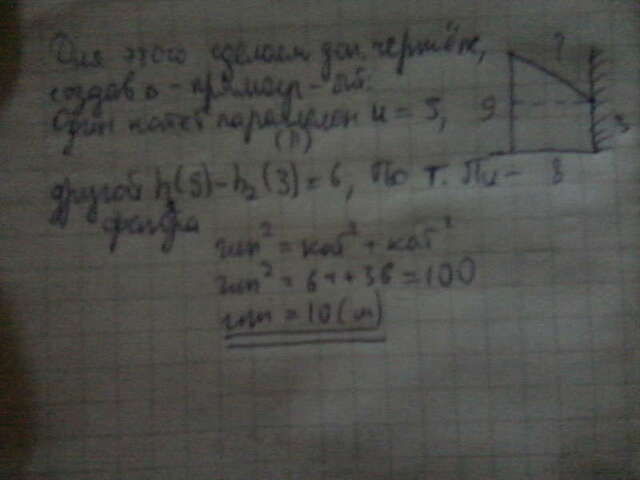 Для этого сделаем доп. чертёж,
создав - прямоуг-ый.
Один катет параллелен и = 3,
(П)
другой h₁(9)-h₂(3)=6, По т. Пи-
фагора
гип² = кат² + кат²
гип² = 64+36=100
гип = 10(м)
?
9
3
8